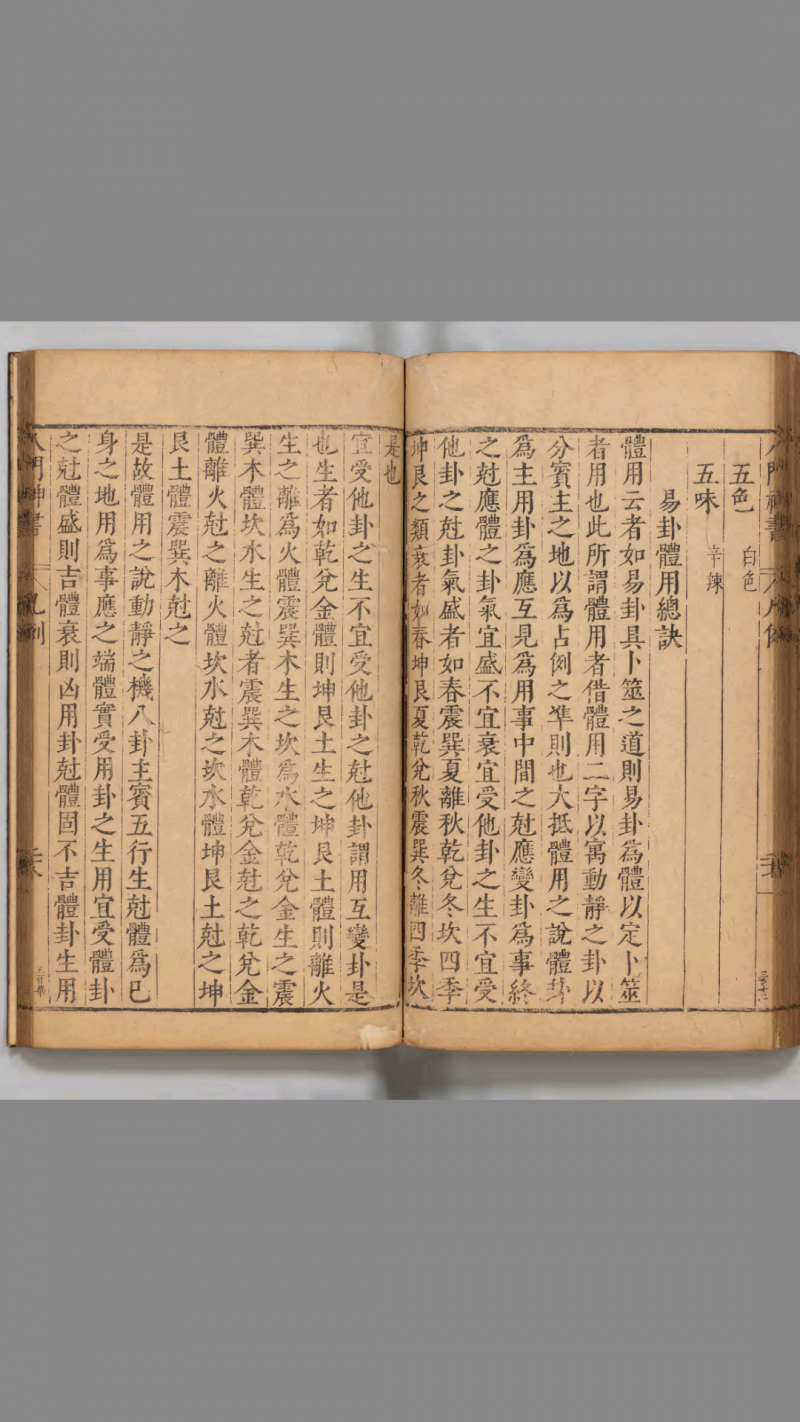 五色　白色
五味　辛辣
易卦體用總訣
體用云者如易卦具卜筮之道則易卦爲體以定卜筮
者用也此所謂體用者借體用二字以寓動靜之卦以
分賓主之地以爲占例之準則也大抵體用之說體卦
爲主用卦爲應互見爲用事中間之尅應變卦爲事終
之尅應體之卦氣宜盛不宜衰宜受他卦之生不宜受
他卦之尅卦氣盛者如春震巽夏離秋乾兌冬坎四季
坤艮之類衰者如春坤艮夏乾兌秋震巽冬離四季坎
是也
宜受他卦之生不宜受他卦之尅他卦謂用互變卦是
也生者如乾兌金體則坤艮土生之坤艮土體則離火
生之離爲火體震巽木生之坎爲水體乾兌金生之震
巽木體坎水生之尅者震巽木體乾兌金尅之乾兌金
體離火尅之離火體坎水尅之坎水體坤艮土尅之坤
艮土體震巽木尅之
是故體用之說動靜之機八卦主賓五行生尅體爲已
身之地用爲事應之端體實受用卦之生用宜受體卦
之尅體盛則吉體衰則凶用卦尅體固不吉體卦生用